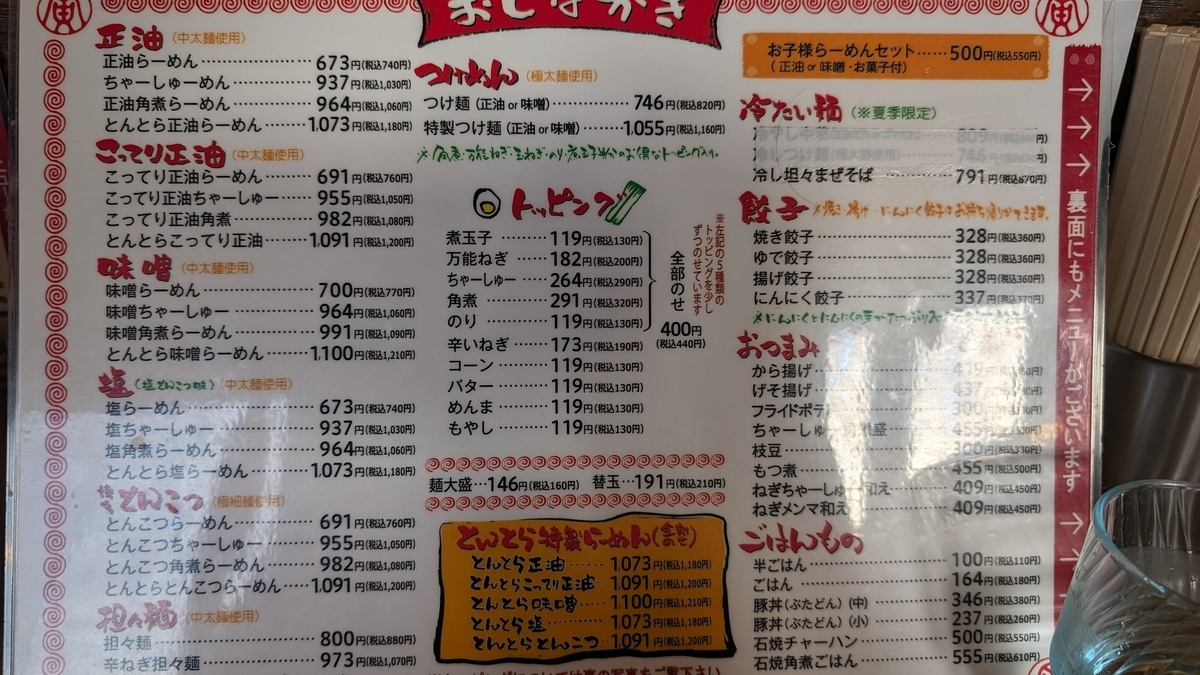 おしながき
正油(中太麺使用)
正油らーめん 673円(税込740円)
ちゃーしゅーめん 937円(税込1,030円)
正油角煮らーめん 964円(税込1,060円)
とんとら正油らーめん 1,073円(税込1,180円)
こってり正油(中太麺使用)
こってり正油らーめん 691円(税込760円)
こってり正油ちゃーしゅー 955円(税込1,050円)
こってり正油角煮 982円(税込1,080円)
とんとらこってり正油 1,091円(税込1,200円)
味噌(中太麺使用)
味噌らーめん 700円(税込770円)
味噌ちゃーしゅー 964円(税込1,060円)
味噌角煮らーめん 991円(税込1,090円)
とんとら味噌らーめん 1,100円(税込1,210円)
塩(塩とんこつ味)(中太麺使用)
塩らーめん 673円(税込740円)
塩ちゃーしゅー 937円(税込1,030円)
塩角煮らーめん 964円(税込1,060円)
とんとら塩らーめん 1,073円(税込1,180円)
とんこつ(極細麺使用)
とんこつらーめん 691円(税込760円)
とんこつちゃーしゅー 955円(税込1,050円)
とんこつ角煮らーめん 982円(税込1,080円)
とんとらとんこつらーめん 1,091円(税込1,200円)
担々麺(中太麺使用)
担々麺 800円(税込880円)
辛ねぎ担々麺 973円(税込1,070円)
つけめん(極太麺使用)
つけ麺(正油or味噌) 746円(税込820円)
特製つけ麺(正油or味噌) 1,055円(税込1,160円)
トッピング
煮玉子 119円(税込130円)
万能ねぎ 182円(税込200円)
ちゃーしゅー 264円(税込290円)
角煮 291円(税込320円)
のり 119円(税込130円)
全部のせ
400円
(税込440円)
※左記の5種類の
トッピングを少し
ずつのせています
辛いねぎ 173円(税込190円)
コーン 119円(税込130円)
バター 119円(税込130円)
めんま 119円(税込130円)
もやし 119円(税込130円)
麺大盛 146円(税込160円) 替玉 191円(税込210円)
とんとら特製らーめん
とんとら正油 1,073円(税込1,180円)
とんとらこってり正油 1,091円(税込1,200円)
とんとら味噌 1,100円(税込1,210円)
とんとら塩 1,073円(税込1,180円)
とんとらとんこつ 1,091円(税込1,200円)
お子様らーめんセット 500円(税込550円)
(正油or味噌・お菓子付)
冷たい麺(※夏季限定)
冷やし中華 809円
冷しつけ麺(極太麺使用) 746円
冷し坦々まぜそば 791円(税込870円)
餃子 ※焼き・揚げ・にんにく餃子はお持ち帰りができます。
焼き餃子 328円(税込360円)
ゆで餃子 328円(税込360円)
揚げ餃子 328円(税込360円)
にんにく餃子 337円(税込370円)
おつまみ
から揚げ
げそ揚げ 437
フライドポテト 300
ちゃーしゅー 盛 455
枝豆 300円(税込330円)
もつ煮 455円(税込500円)
ねぎちゃーしゅー和え 409円(税込450円)
ねぎメンマ和え 409円(税込450円)
ごはんもの
半ごはん 100円(税込110円)
ごはん 164円(税込180円)
豚丼(ぶたどん)(中) 346円(税込380円)
豚丼(ぶたどん)(小) 237円(税込260円)
石焼チャーハン 500円(税込550円)
石焼角煮ごはん 555円(税込610円)
→→→裏面にもメニューがございます→→→